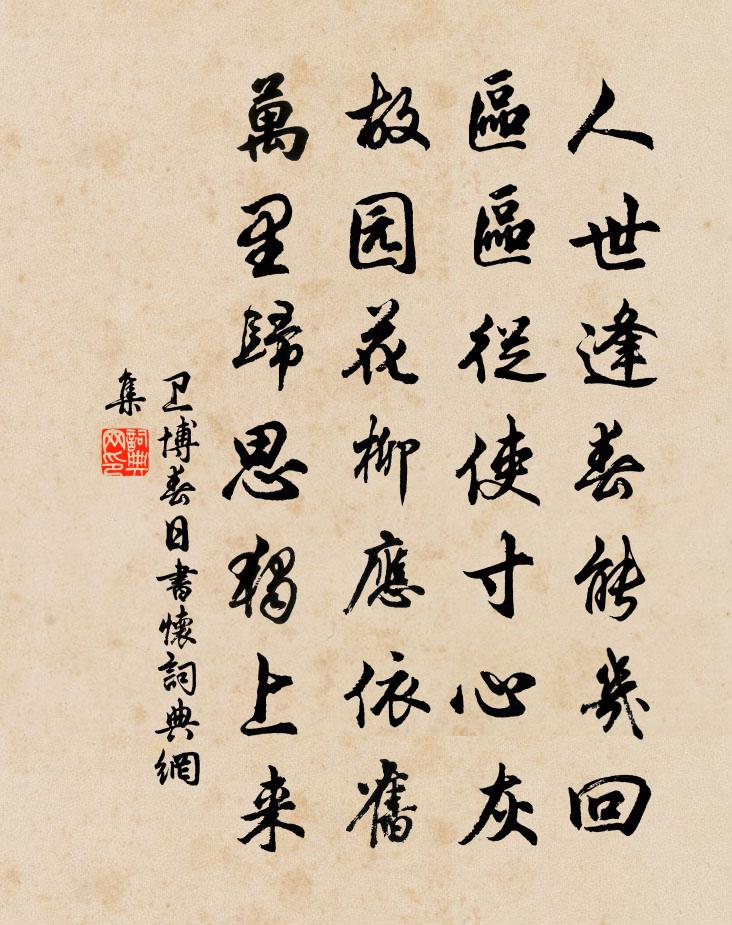 人世逢春能幾回
區區從使寸心灰
故园花柳應依舊
萬里歸思獨上来
卫博春日書懷詞典網
集
詞典
网印